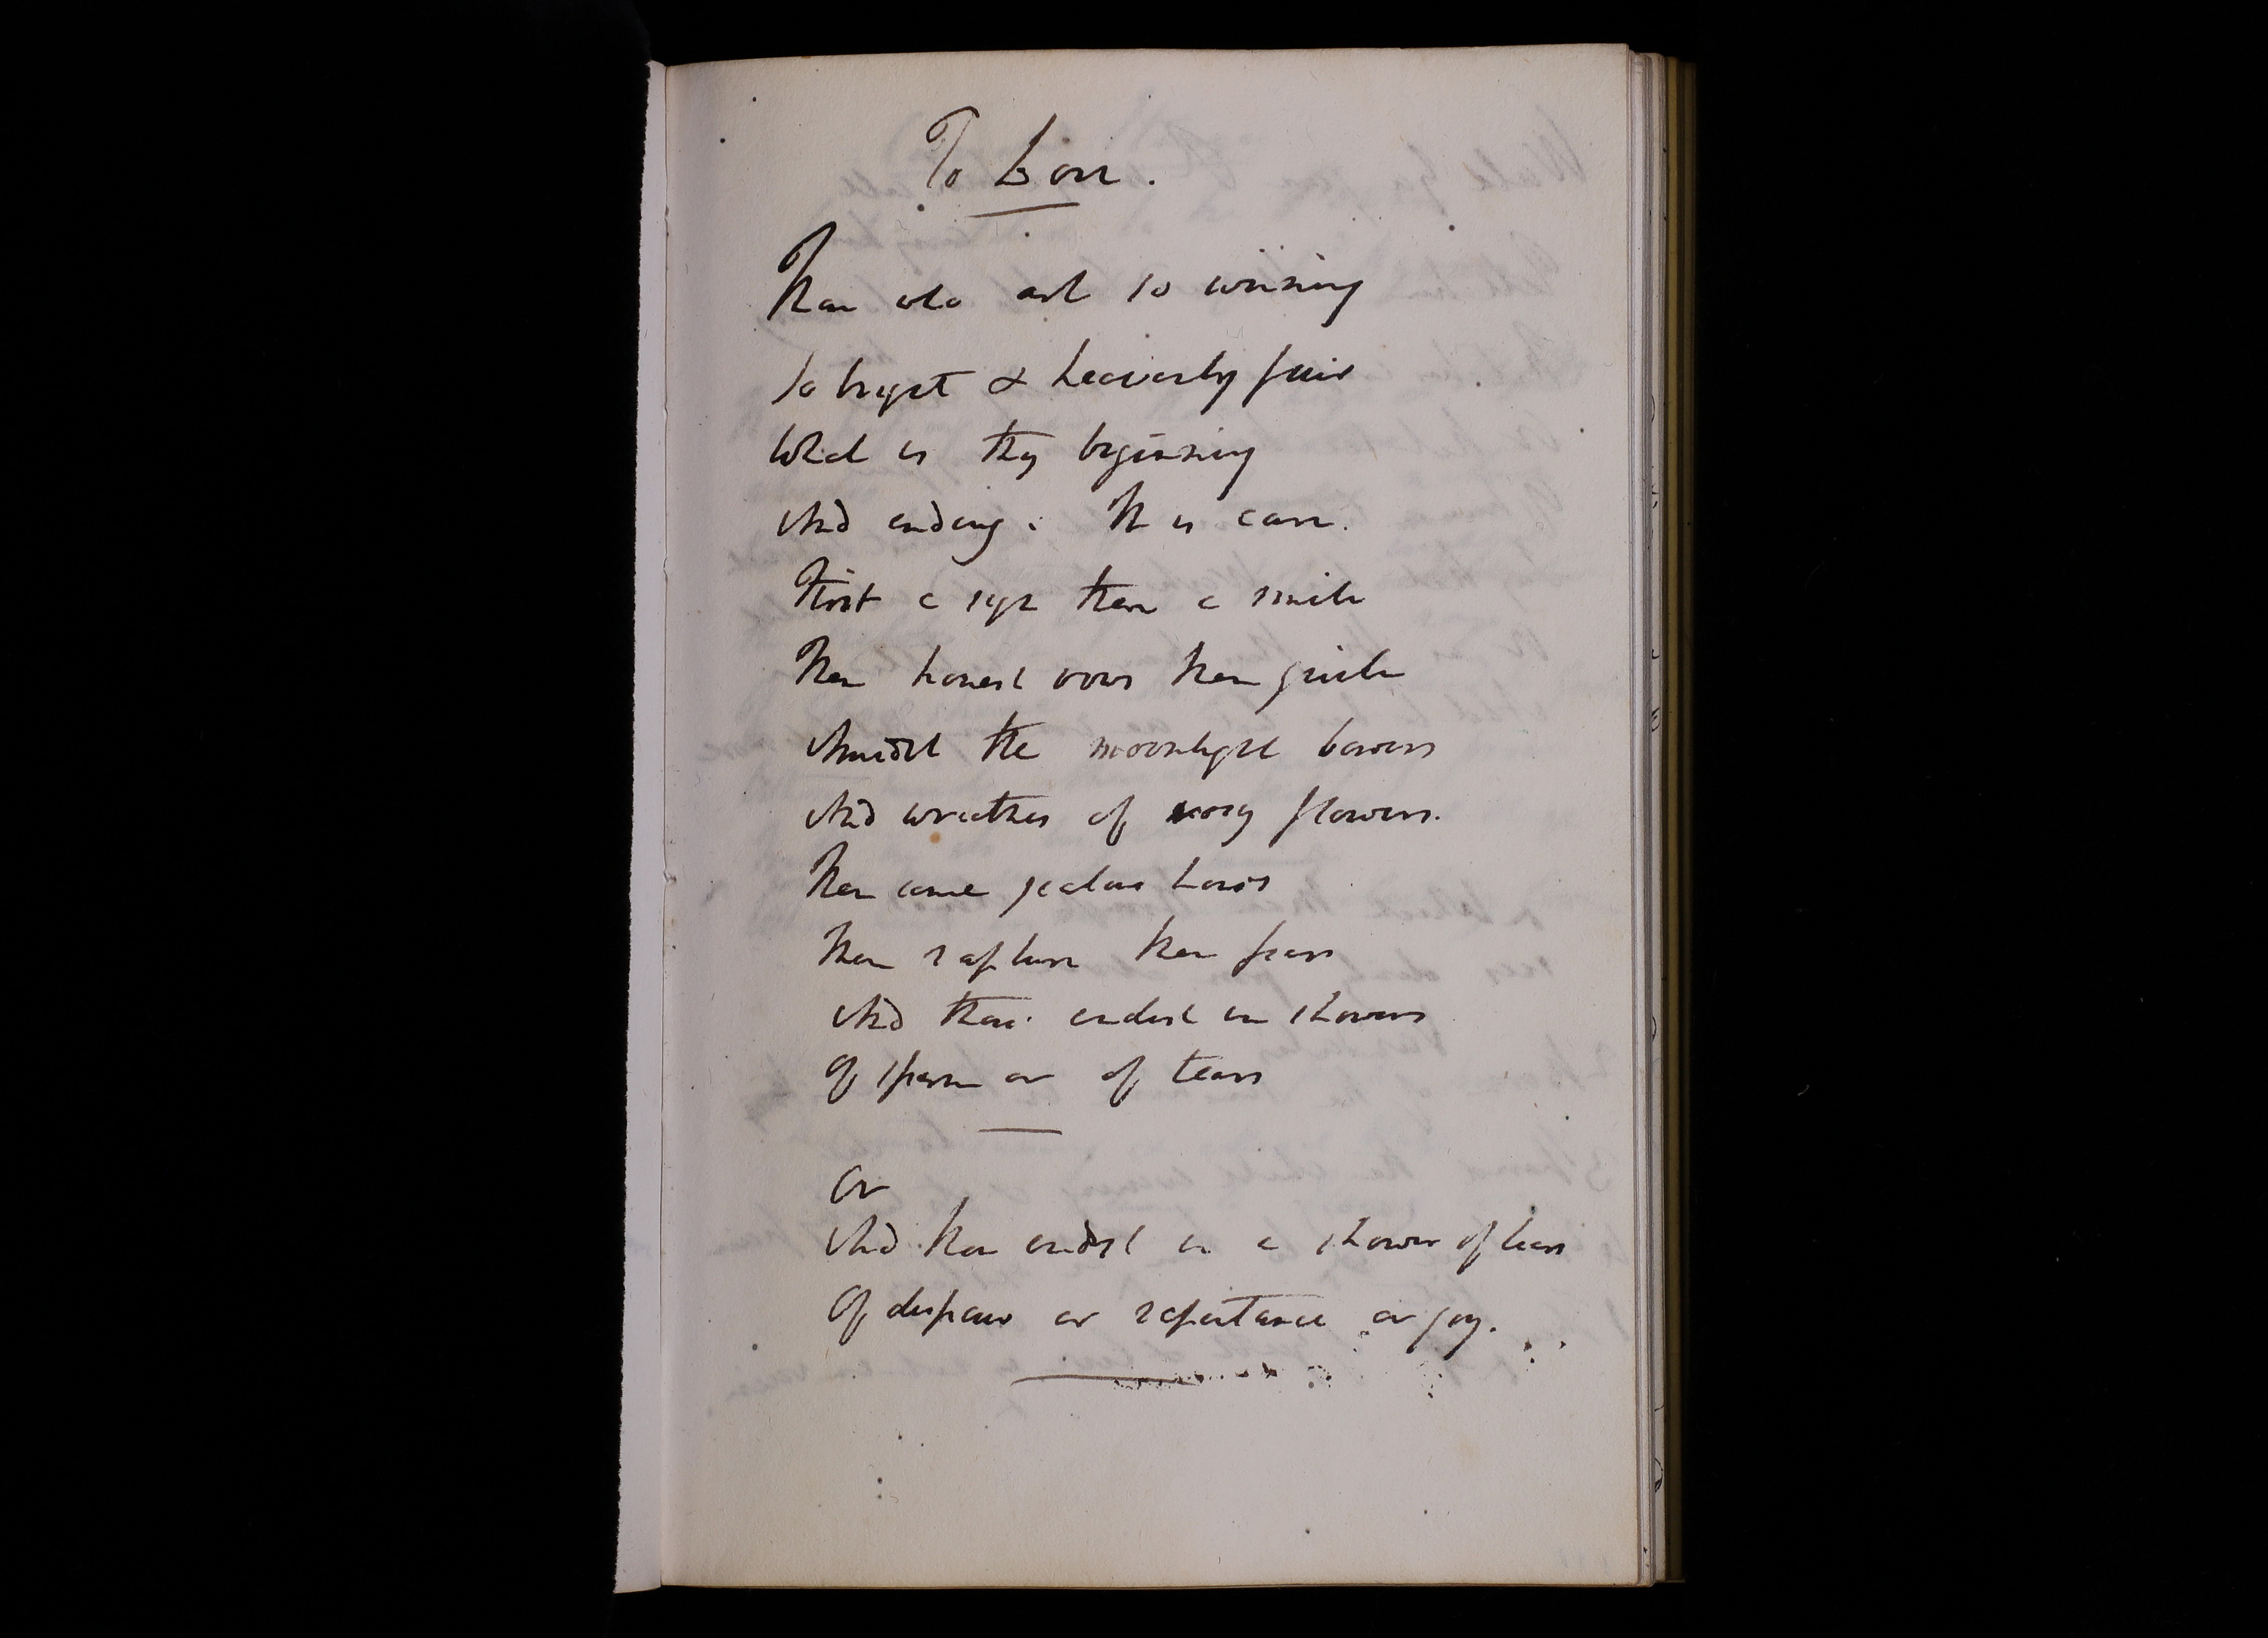 To Love.
Thou who art so winning
So bright & heavenly fair
What is thy beginning
And ending: It is care.
First a sigh then a smile
Then honest vows then guile
Amidst the moonlight bowers
And wreathes of rosy flowers.
Then come jealous hours
Then rapture then fears
And thou endest in showers
Of or of tears
Or
And thou endest in a shower of tears
Of despair or repentance or joy.